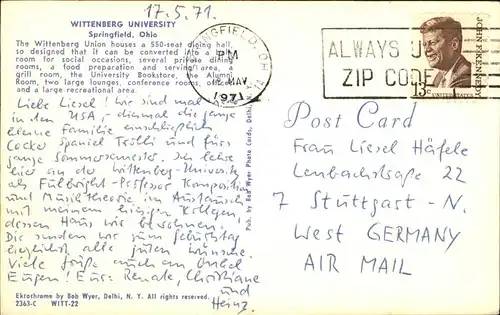 17.5.71.
WITTENBERG UNIVERSITY
Springfield, Ohio
The Wittenberg Union houses a 550-seat dining hall,
so designed that it can be converted into a
room for social occasions, several private dining
rooms, a food preparation and serving area, a
grill room, the University Bookstore, the Alumni
Room, two large lounges, conference rooms,
and a large recreational area.
SPRINGFIELD, OH
PM
MAY
1971
ALWAYS USE
ZIP CODE
JOHN F. KENNEDY
13c
UNITED STATES
Liebe Liesel! Wir sind mal
in den USA, diesmal die ganze
kleine Familie einschließlich
Cocker Spaniel Trölli und fürs
ganze Sommersemester. Ich lehre
hier an der Wittenberg-Universität
als Fulbright-Professor Komposition
und Musiktheorie im Austausch
mit meinem hiesigen Kollegen,
dessen Haus wir bewohnen.
Dir senden wir zum Geburtstag
herzlichst alle guten Wünsche.
Viele Grüße auch an Onkel
Eugen! Eure Renate, Christiane
und
Heinz.
Pub. by Bob Wyer Photo Cards, Delhi,
Post Card
Frau Liesel Häfele
Lenbachstraße 22
7 Stuttgart-N.
West GERMANY
AIR MAIL
Ektachrome by Bob Wyer, Delhi, N. Y. All rights reserved.
2363-C WITT-22